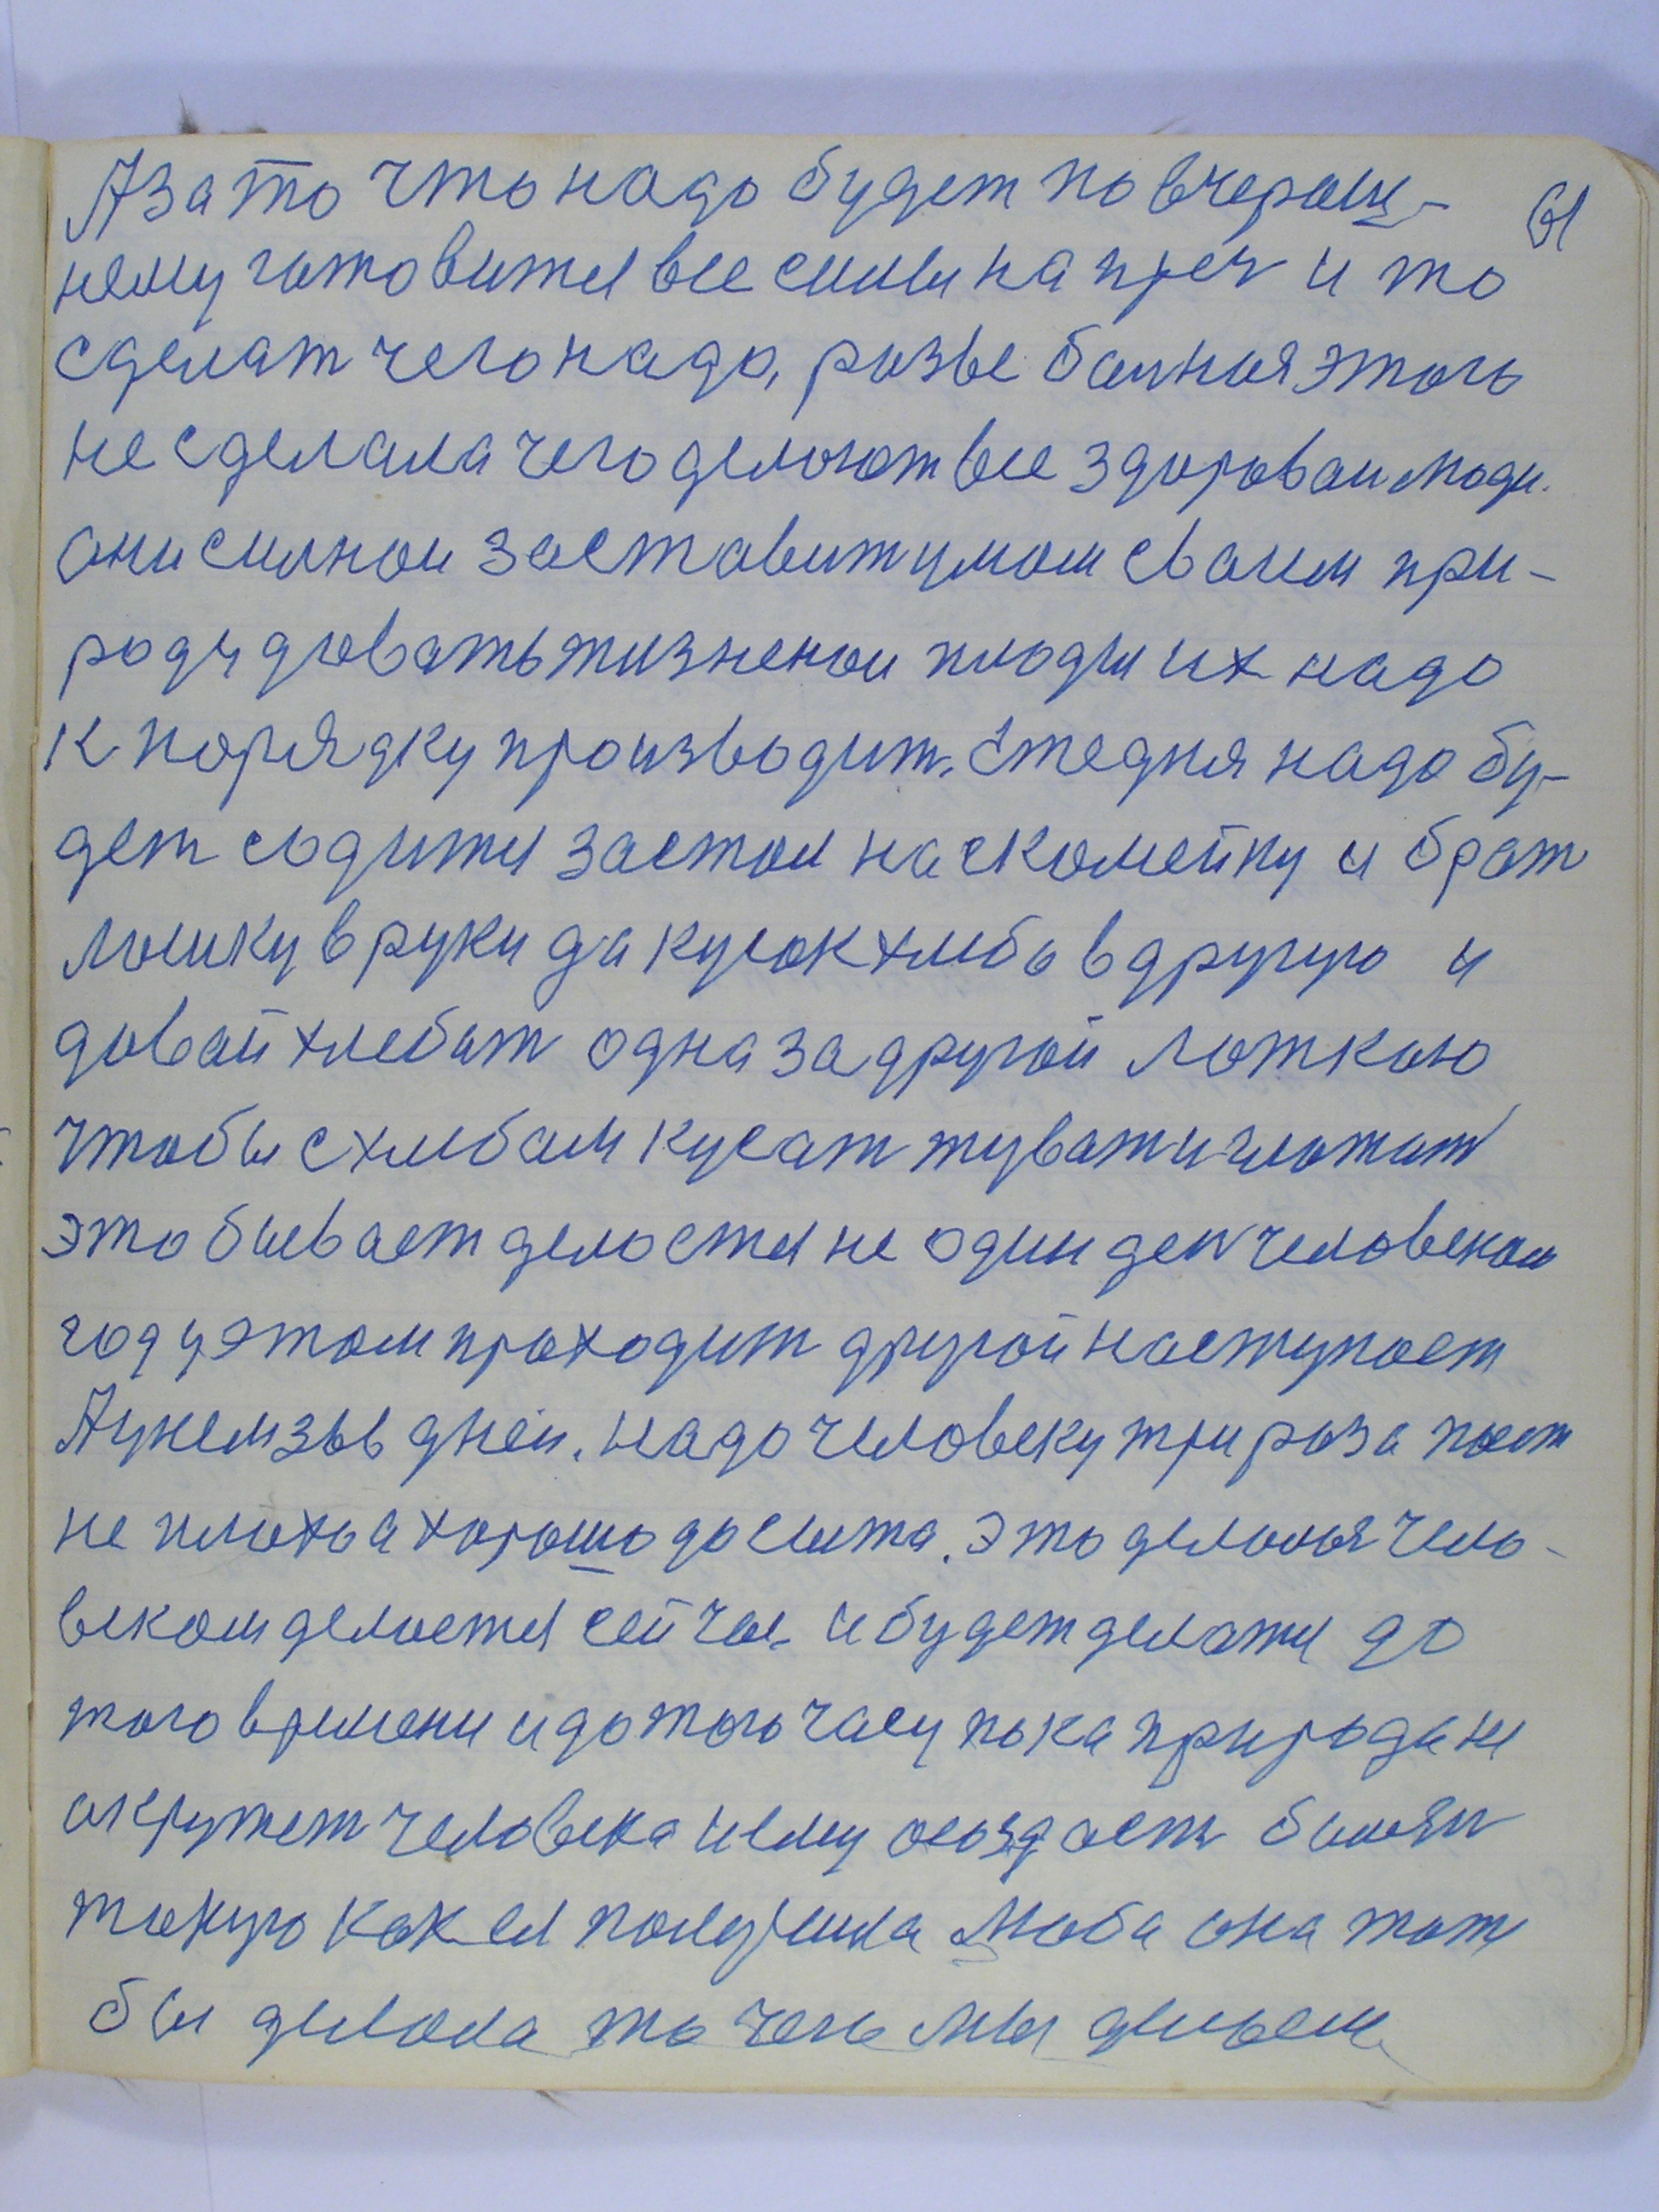 А за то что надо будет по вчераш-
61
нему готовится все силы напреч и то
сделат чего надо, разве балная этого
не сделала чего делают все здороваи люди.
они силнаи заставит умом сваим при-
роду давать жизненаи плоды их надо
к порядку производит. Етедня надо бу-
дет садится за стол на скамейку и брат
ложку в руки да кусок хлеба в другую и
давай хлебат одна за другой ложкаю
чтобы с хлебам кусат жуват и глотат
это бывает делается не один ден человекам
год у этом праходит другой наступает
А у нем 365 дней. надо человеку три раза поест
не плохо а хорошо до сыта. это делалоя чело-
веком делается сейчас и будет делатся до
того времени и до того часу пока природа не
акружет человека и ему создаст балязн
такую как ея получила Люба она тоже
бы делала то чего мы делаем